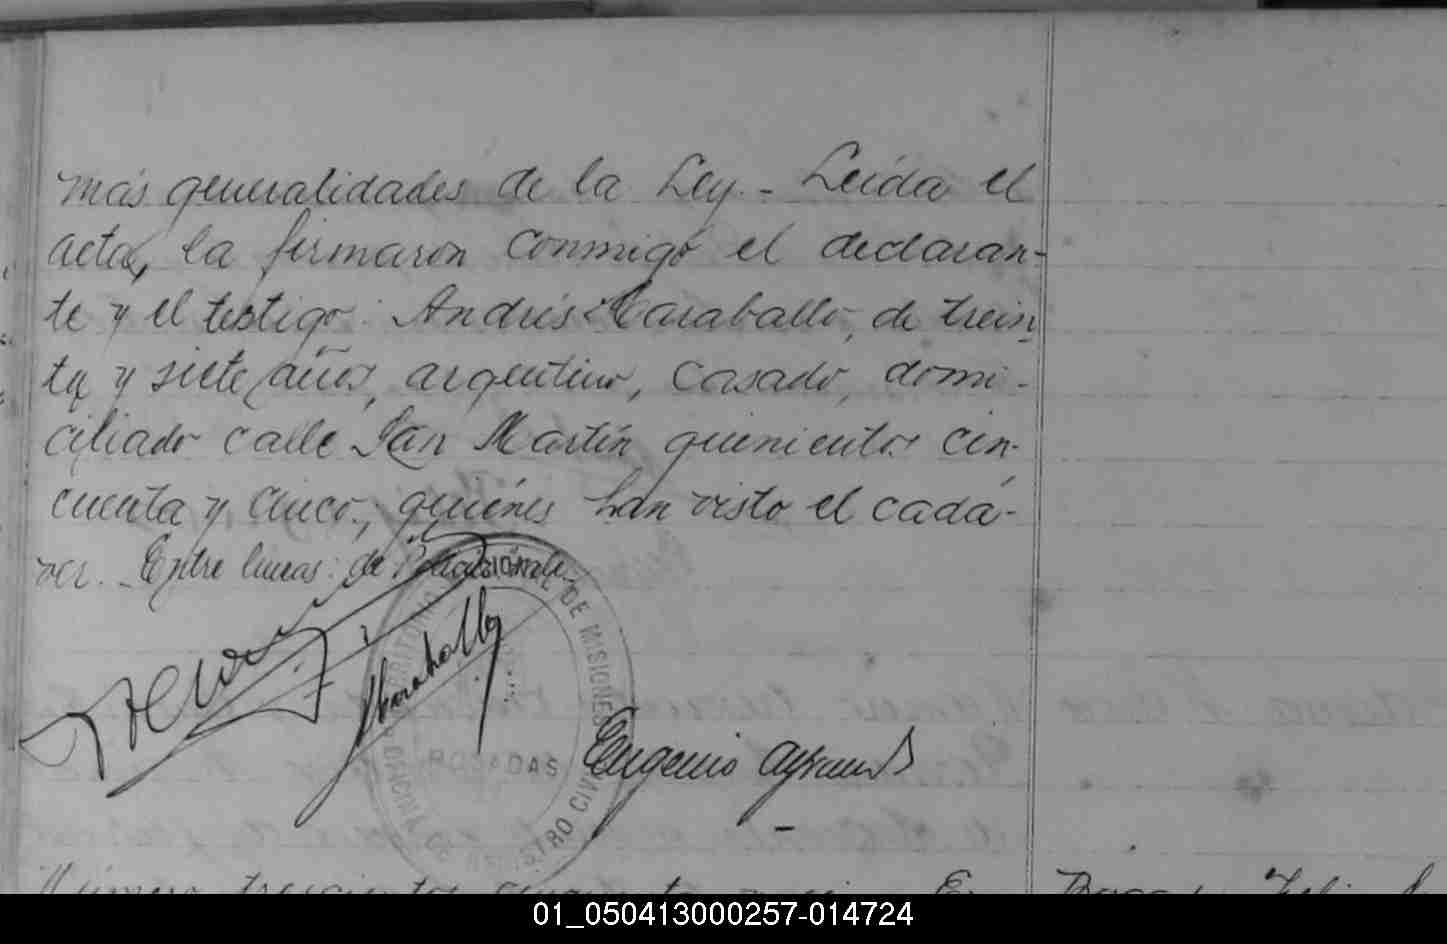 más generalidades de la Ley. - Leída el
acta, la firmaron conmigo el declaran-
te y el testigo: Andrés Caraballo, de trein
ta y siete años, argentino, casado, domi-
ciliado calle San Martín quinientos cin-
cuenta y cinco, quiénes han visto el cadá-
ver. - Entre líneas: de
ACaraballo
TERRITORIO NACIONAL DE MISIONES
POSADAS
OFICINA DE REGISTRO CIVIL
Eugenio
Número trescientos cincuenta
01_050413000257-014724